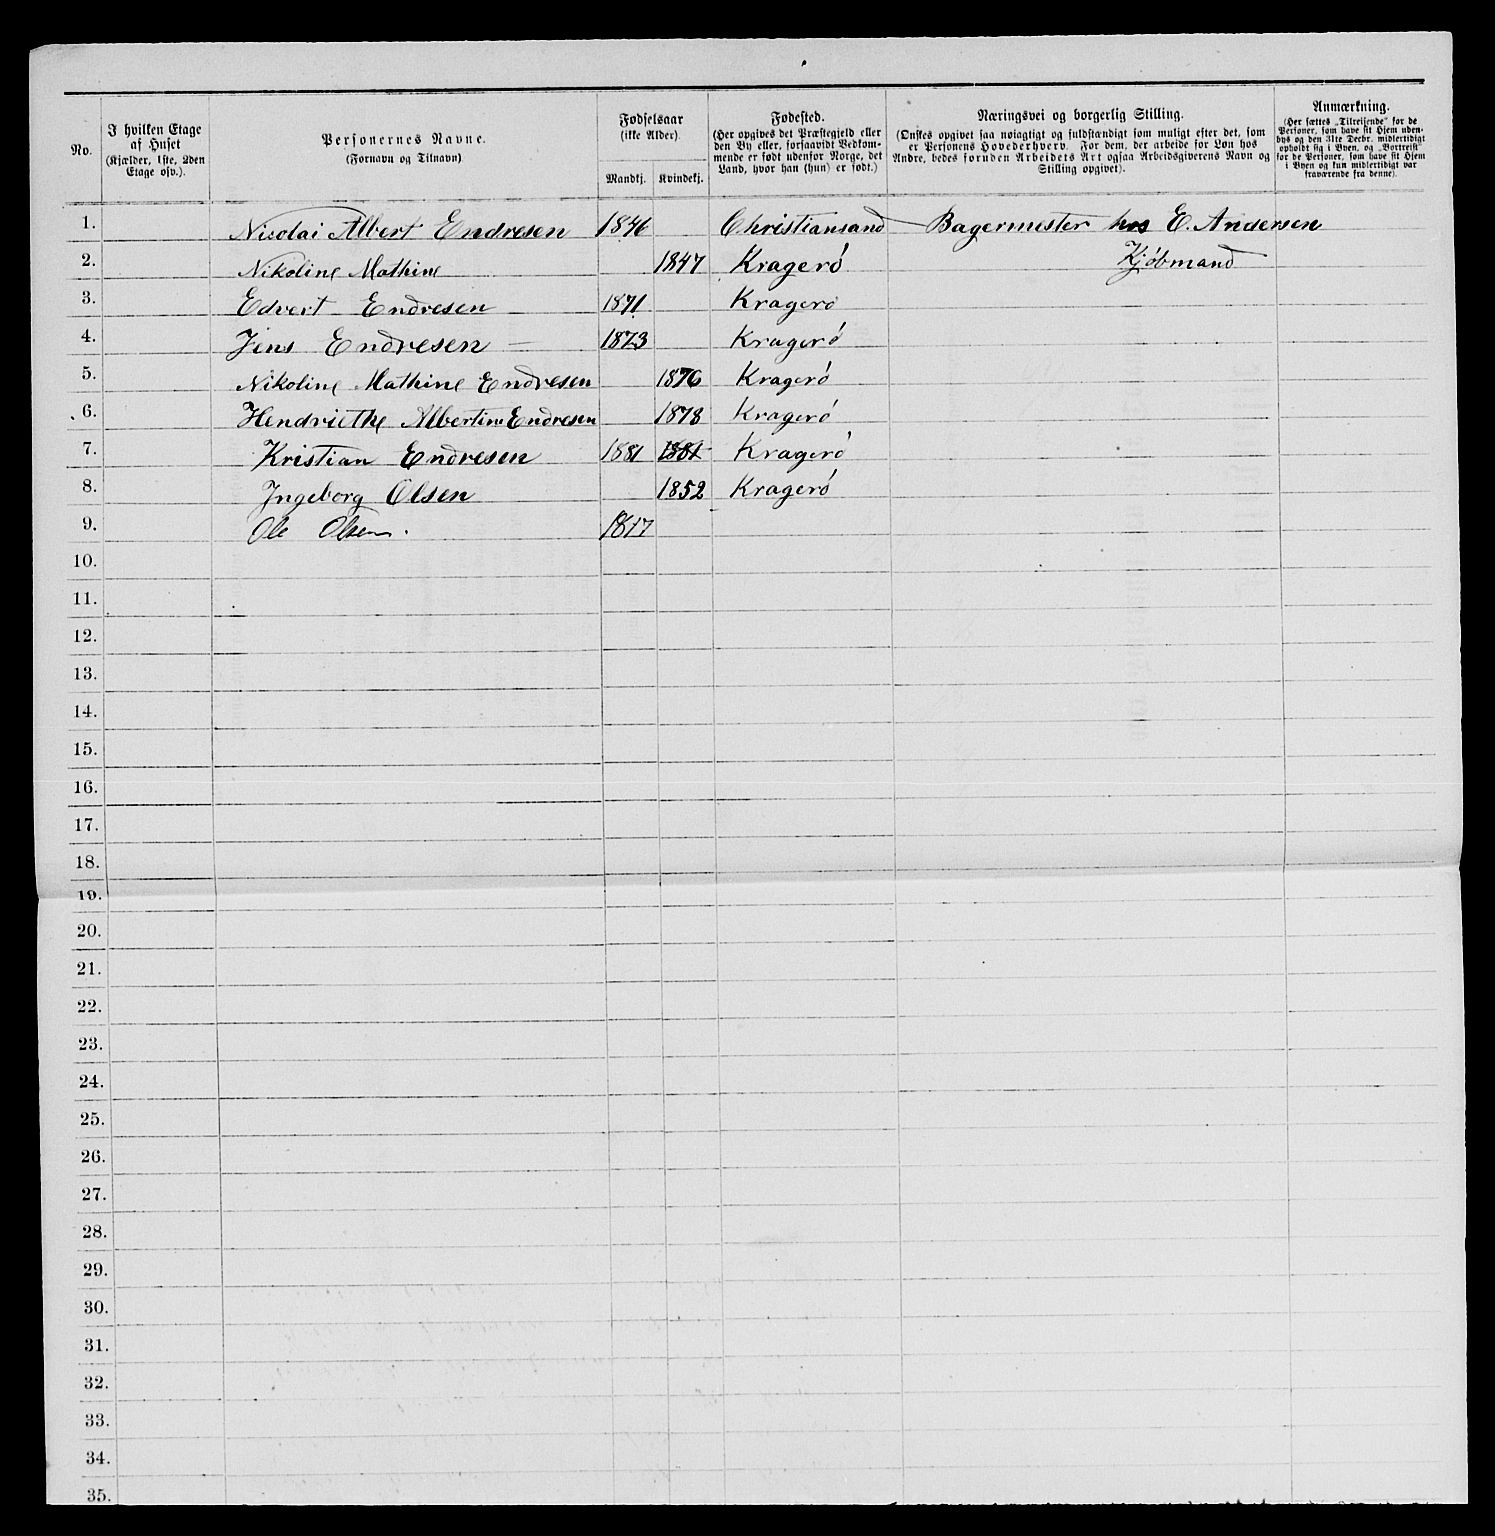 No.
I hvilken Etage af Huset (Kjælder, 1ste, 2den Etage osv.).
Personernes Navne. (Fornavn og Tilnavn)
Fødselsaar (ikke Alder). Mandkj. Kvindekj.
Fødested. (Her opgives det Præstegjeld eller den By eller, forsaavidt Vedkommende er født udenfor Norge, det Land, hvor han (hun) er født.)
Næringsvei og borgerlig Stilling. (Ønskes opgivet saa nøiagtigt og fuldstændigt som muligt efter det, som er Personens Hovederhverv. For dem, der arbeide for Løn hos Andre, bedes foruden Arbeidets Art ogsaa Arbeidsgiverens Navn og Stilling opgivet).
Anmærkning. (Her sættes „Tilreisende" for de Personer, som have sit Hjem udenbys og den 31te Decbr. midlertidigt opholdt sig i Byen, og „Bortreist" for de Personer, som have sit Hjem i Byen og kun midlertidigt var fraværende fra denne).
1. Nicolai Albert Endresen 1846 Christiansand Bagermester hos E. Andersen
2. Nikoline Mathine 1847 Kragerö Kjöbmand
3. Edvert Endresen 1871 Kragerö
4. Jens Endresen 1873 Kragerö
5. Nikoline Mathine Endresen 1876 Kragerö
6. Hendriethe Albertine Endresen 1878 Kragerö
7. Kristian Endresen 1881 1881 Kragerö
8. Ingeborg Olsen 1852 Kragerö
9. Ole Olsen. 1817
10.
11.
12.
13.
14.
15.
16.
17.
18.
19.
20.
21.
22.
23.
24.
25.
26.
27.
28.
29.
30.
31.
32.
33.
34.
35.